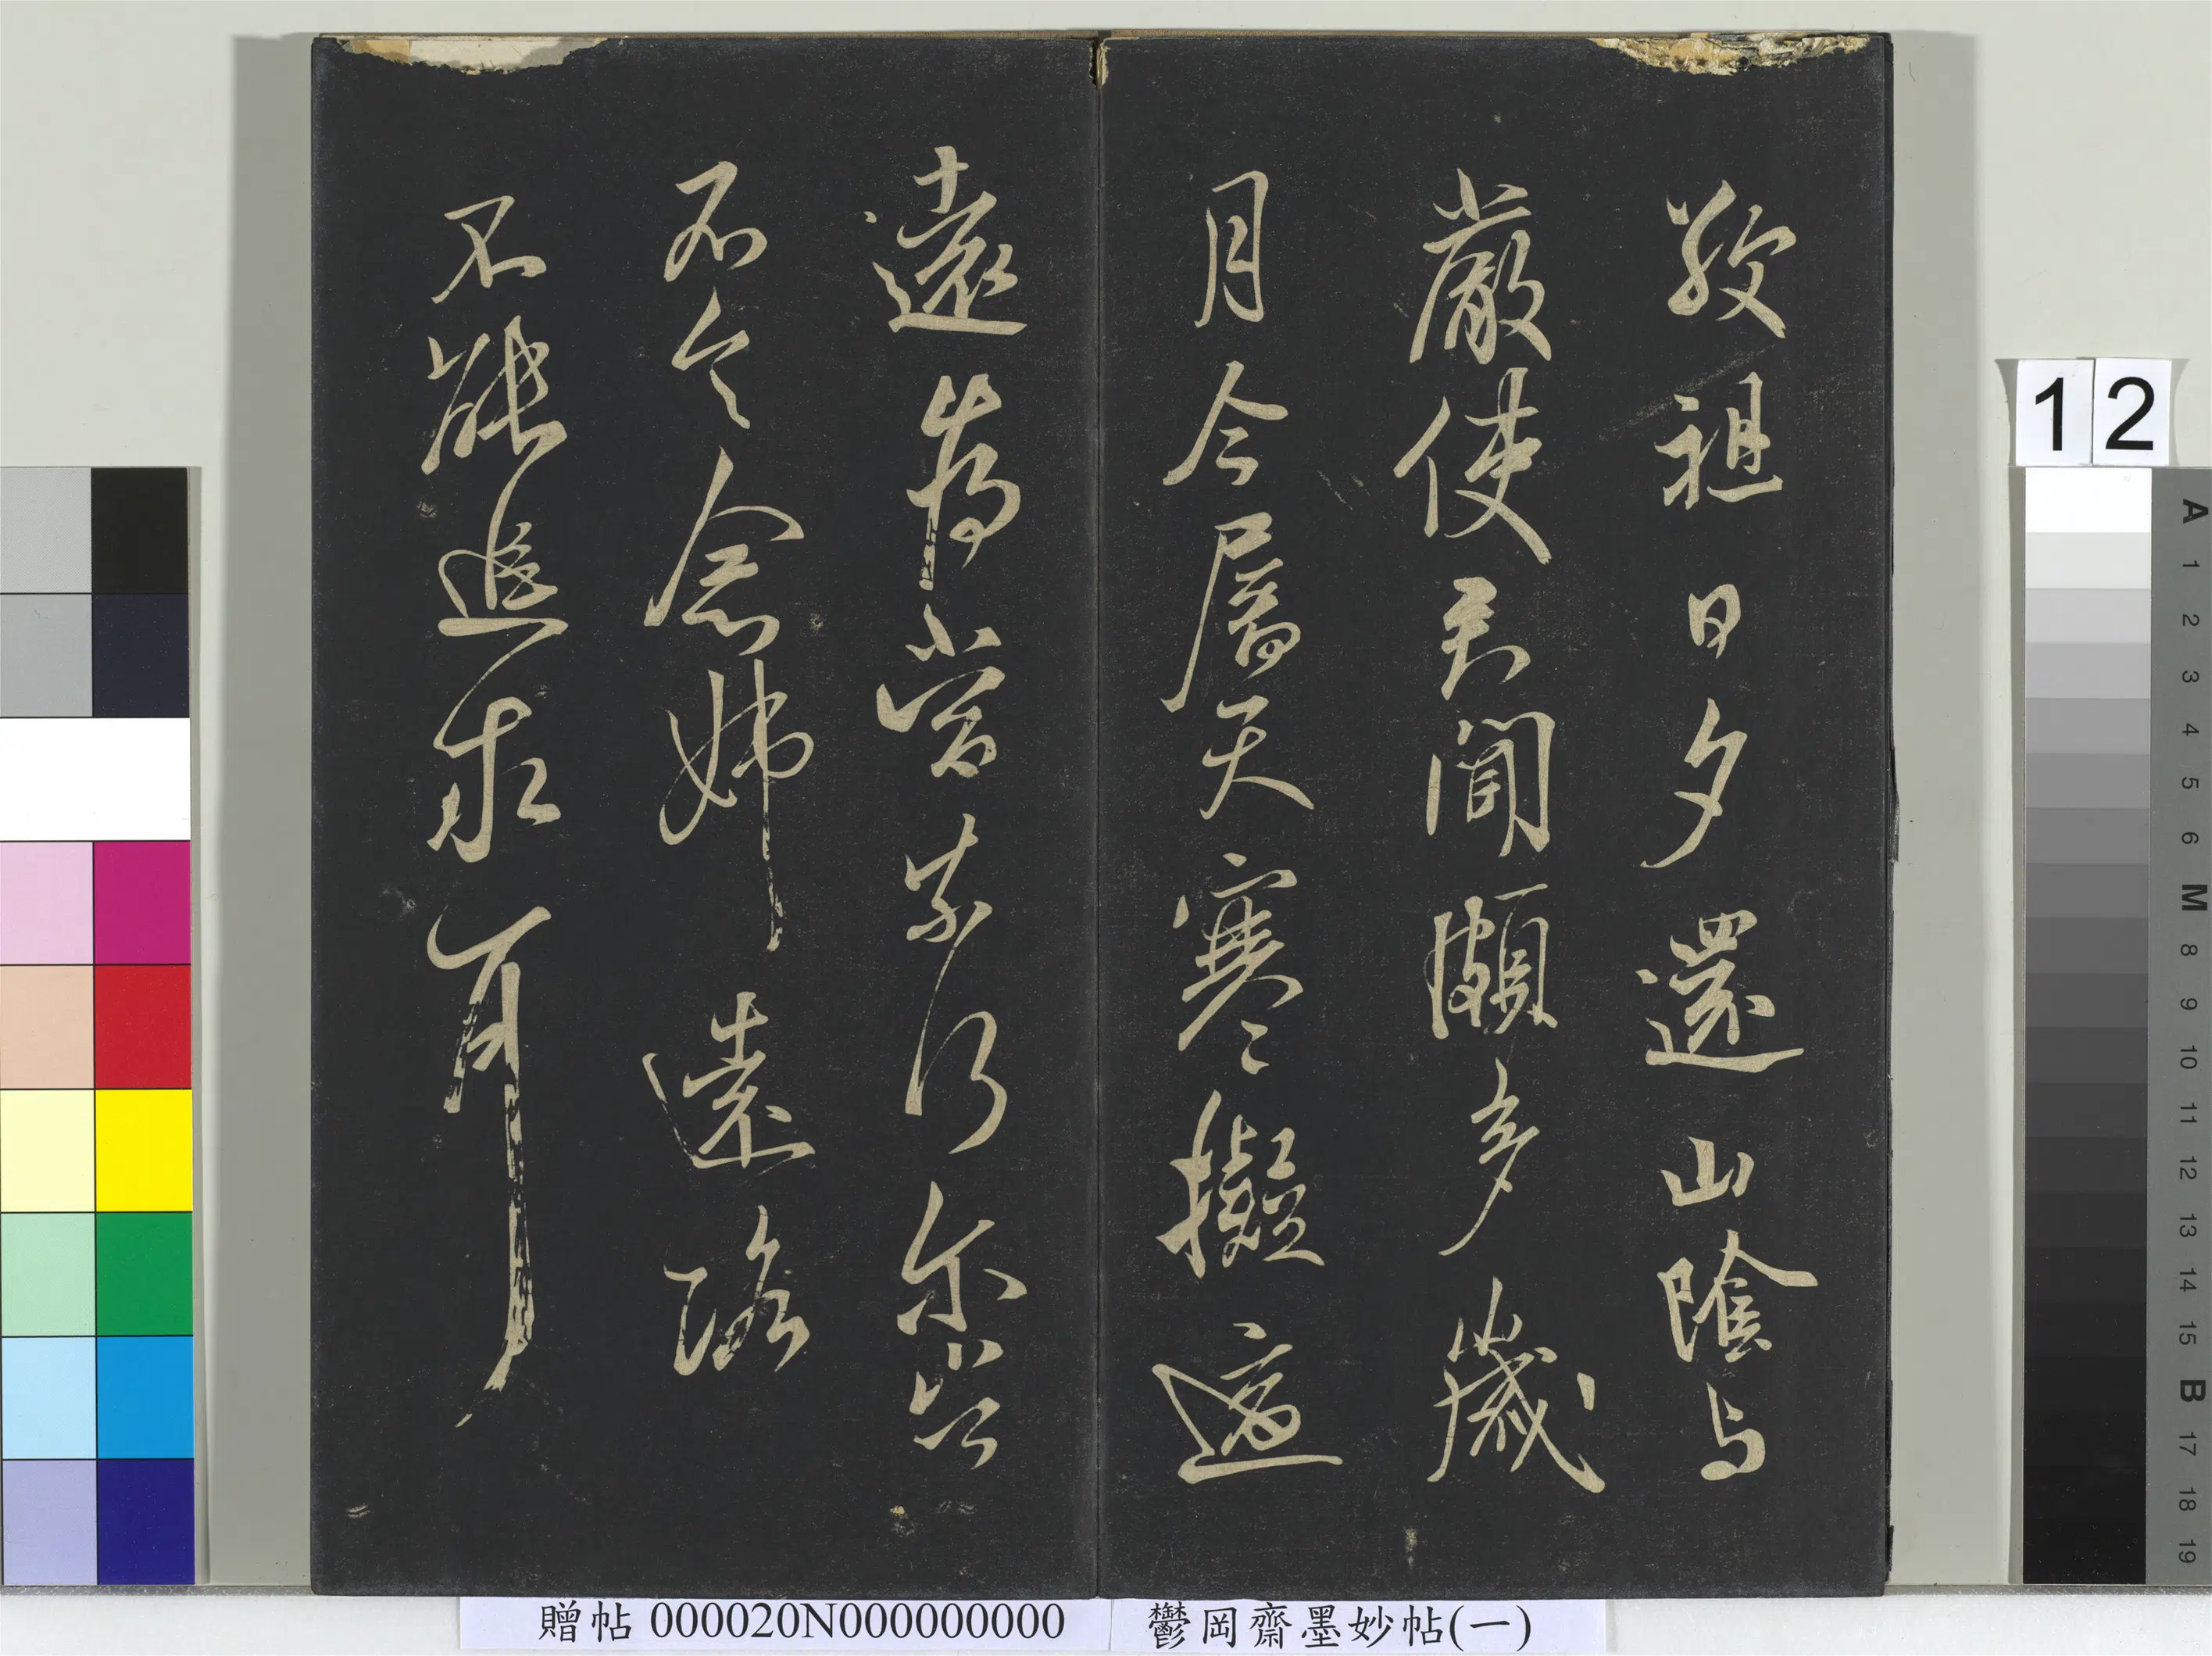 敬祖日夕還山陰与
嚴使君聞頗多歲
月今屬天寒擬適
遠為當奈何尔豈
不令念姊遠路
不能追求耳
12
A 1 2 3 4 5 6 M 8 9 10 11 12 13 14 15 B 17 18 19
贈帖 000020N000000000
鬱岡齋墨妙帖(一)